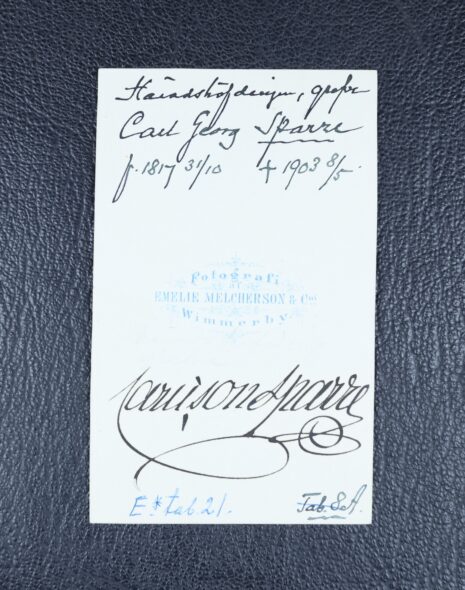 Häradshöfdingen, grefve
Carl Georg Sparre
f. 1817 31/10 † 1903 8/5.
Fotografi
af
EMELIE MELCHERSON & Coi
Wimmerby.
Sparre
E* tab. 21.
Tab. 8A.